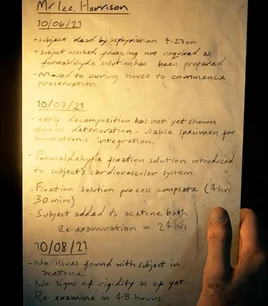 Mr Lee, Harrison
10/06/21
- subject dead by asphyxiation 4:27am
- subject washed, freezing not required as
formaldehyde solution has been prepared
- Moved to curing house to commence
preservation
10/07/21
- early decomposition has not yet shown
deterioration - viable specimen for
animatronic integration.
- Formaldehyde fixation solution introduced
to subject's cardiovascular system.
- Fixation solution process complete (4hr
30 mins)
- Subject added to acetone bath
Re-examination in 24hr
10/08/21
- No issues found with subject in
acetone.
- No signs of rigidity as of yet.
- Re examine in 48 hours.